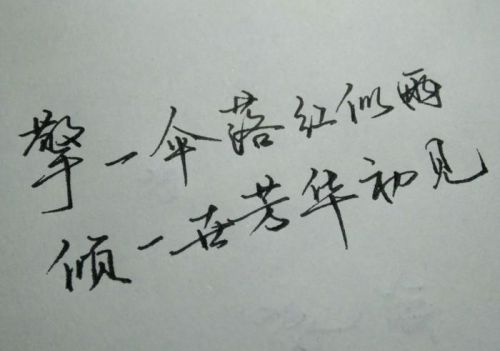 擎一伞落红似雨
倾一世芳华初见